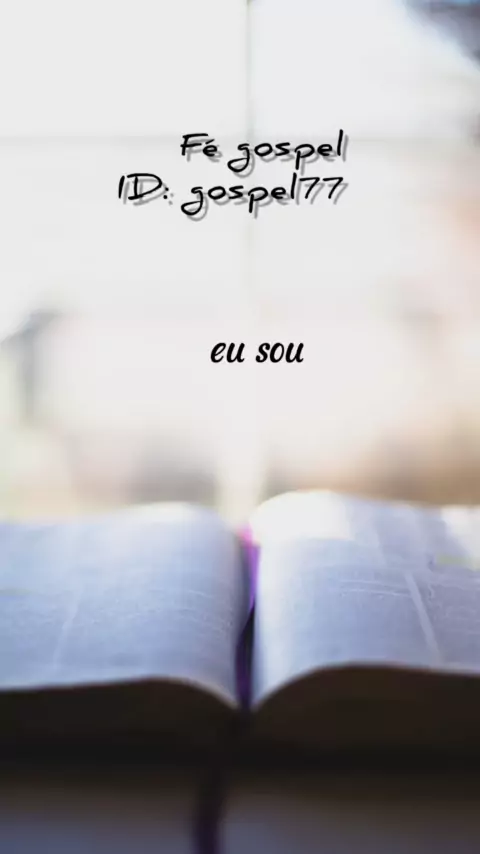 Fé gospel
ID: gospel77
eu sou